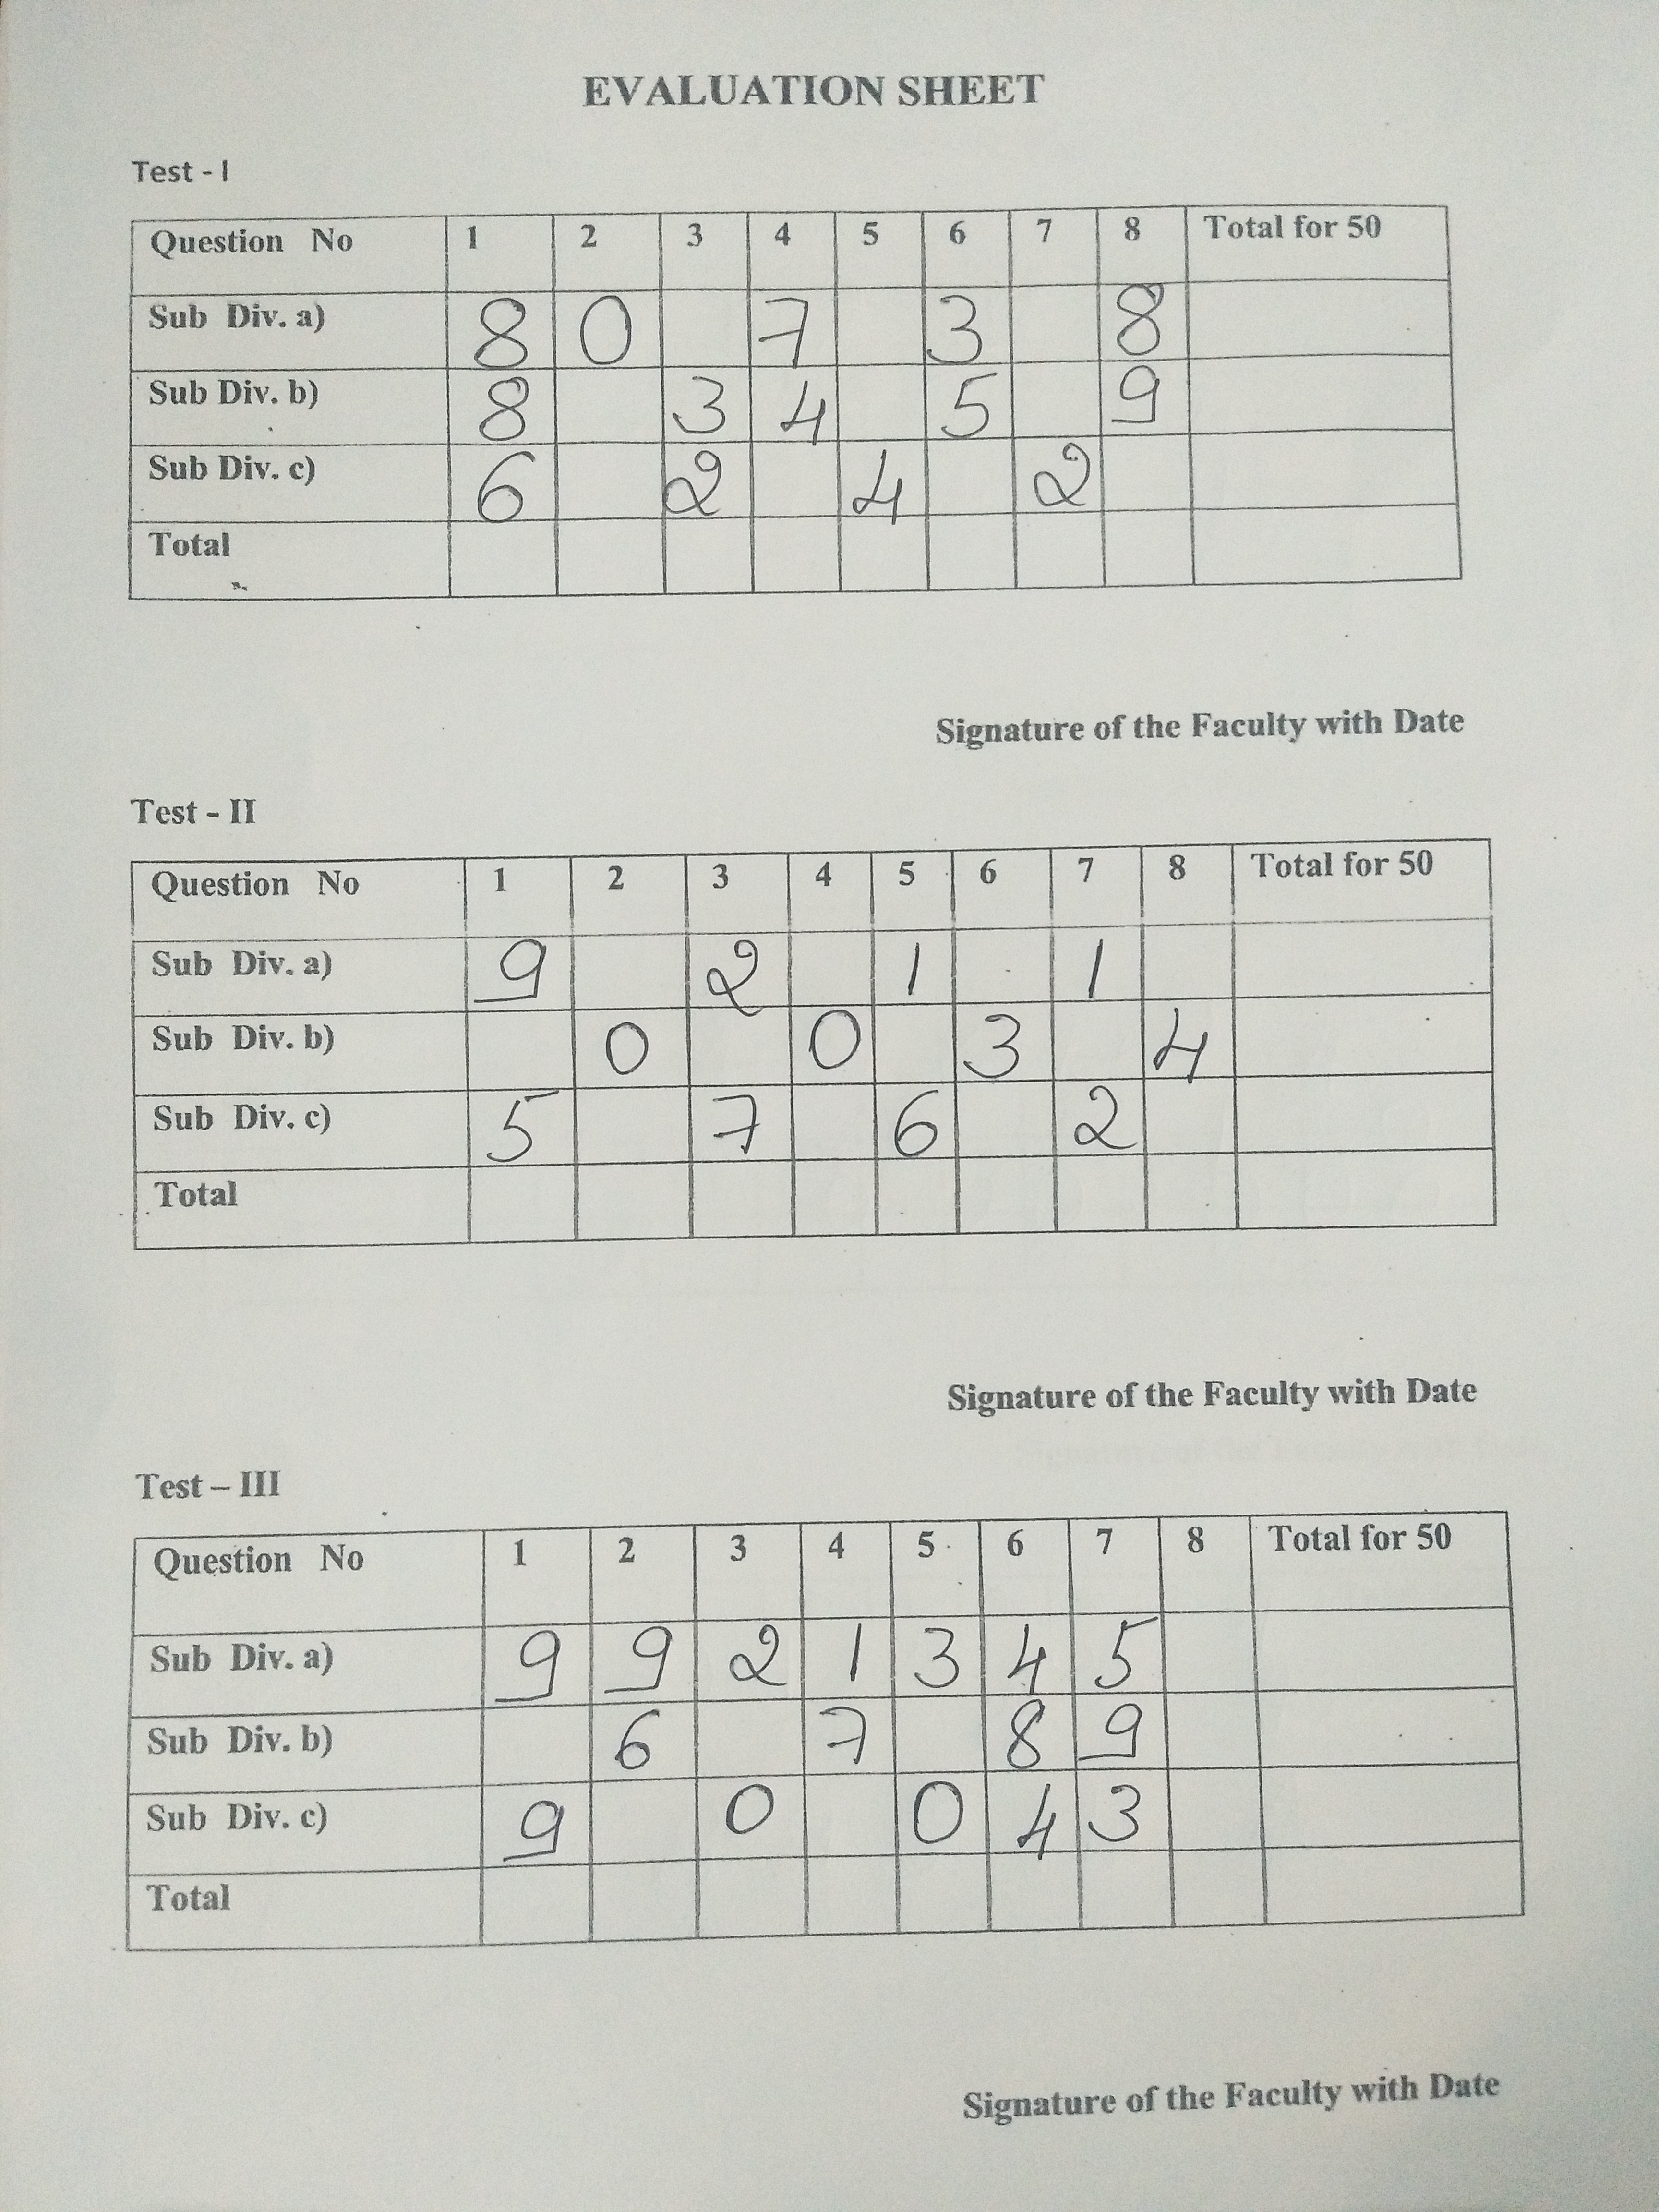 EVALUATION SHEET
Test - I
Question No 1 2 3 4 5 6 7 8 Total for 50
Sub Div. a) 8 0 7 3 8
Sub Div. b) 8 3 4 5 9
Sub Div. c) 6 2 4 2
Total
Signature of the Faculty with Date
Test - II
Question No 1 2 3 4 5 6 7 8 Total for 50
Sub Div. a) 9 2 1 1
Sub Div. b) 0 0 3 4
Sub Div. c) 5 7 6 2
Total
Signature of the Faculty with Date
Test – III
Question No 1 2 3 4 5 6 7 8 Total for 50
Sub Div. a) 9 9 2 1 3 4 5
Sub Div. b) 6 7 8 9
Sub Div. c) 9 0 0 4 3
Total
Signature of the Faculty with Date